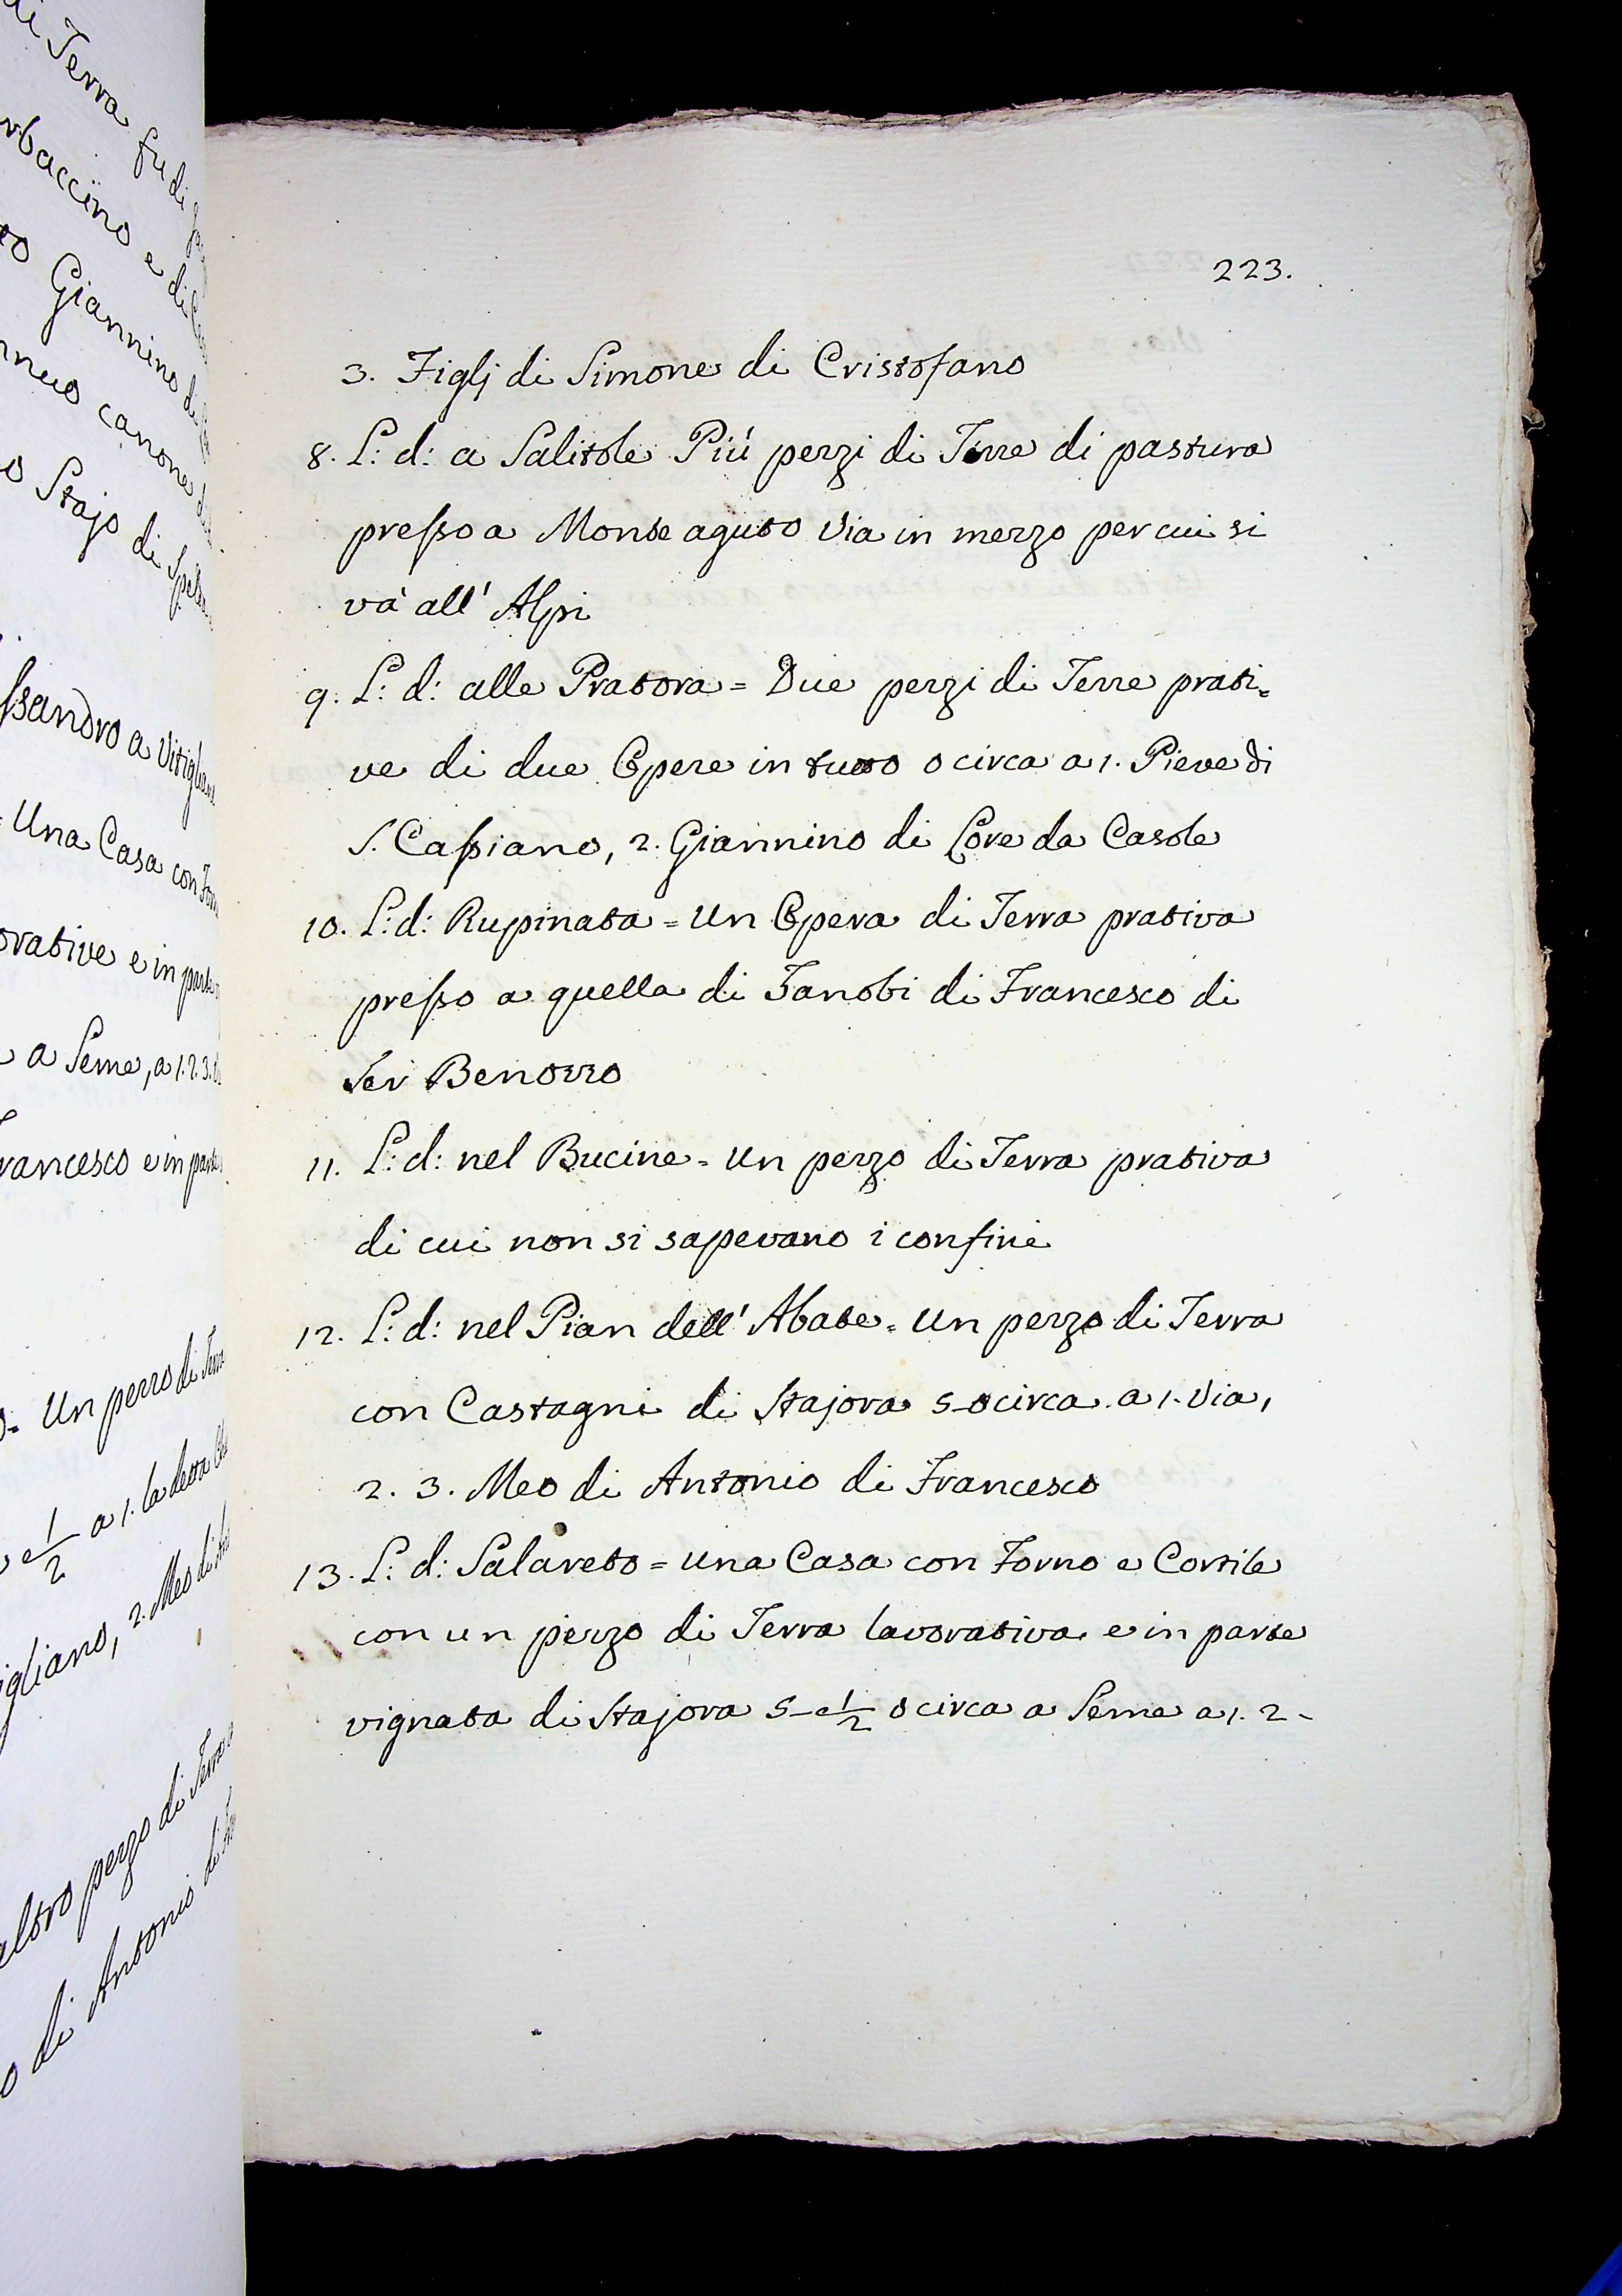 di Terra fu di
baccino e di
Giannino di
canone
Stajo di
ssandro a Vitiglian
Una Casa con
rative e in parte
a Seme, a 1. 2. 3.
rancesco e in parte
Un pezzo di Terra
e 1/2 a 1. la detta
igliano, 2. Meo di
altro pezzo di Terra
di Antonio di
223.
3. Figlj di Simone di Cristofano
8. L: d: a Salitole Piú pezzi di Terre di pastura
presso a Monte aguto Via in mezzo per cui si
và all' Alpi
9. L: d: alle Pratora = Due pezzi di Terre prati=
ve di due Opere in tutto o circa a 1. Pieve di
S. Cassiano, 2. Giannino di Lore da Casole
10. L: d: Rupinata = Un Opera di Terra prativa
presso a quella di Zanobi di Francesco di
Ser Benozzo
11. L: d: nel Bucine = Un pezzo di Terra prativa
di cui non si sapevano i confini
12. L: d: nel Pian dell' Abate = Un pezzo di Terra
con Castagni di Stajora 5 - o circa a 1. Via,
2. 3. Meo di Antonio di Francesco
13. L: d: Salareto = Una Casa con Forno e Cortile
con un pezzo di Terra lavorativa e in parte
vignata di Stajora 5 - e 1/2 o circa a Seme a 1. 2 -